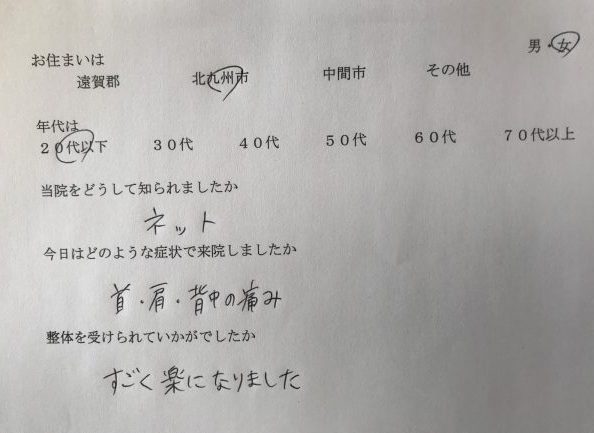 男・女
お住まいは
遠賀郡 北九州市 中間市 その他
年代は
20代以下 30代 40代 50代 60代 70代以上
当院をどうして知られましたか
ネット
今日はどのような症状で来院しましたか
首・肩・背中の痛み
整体を受けられていかがでしたか
すごく楽になりました